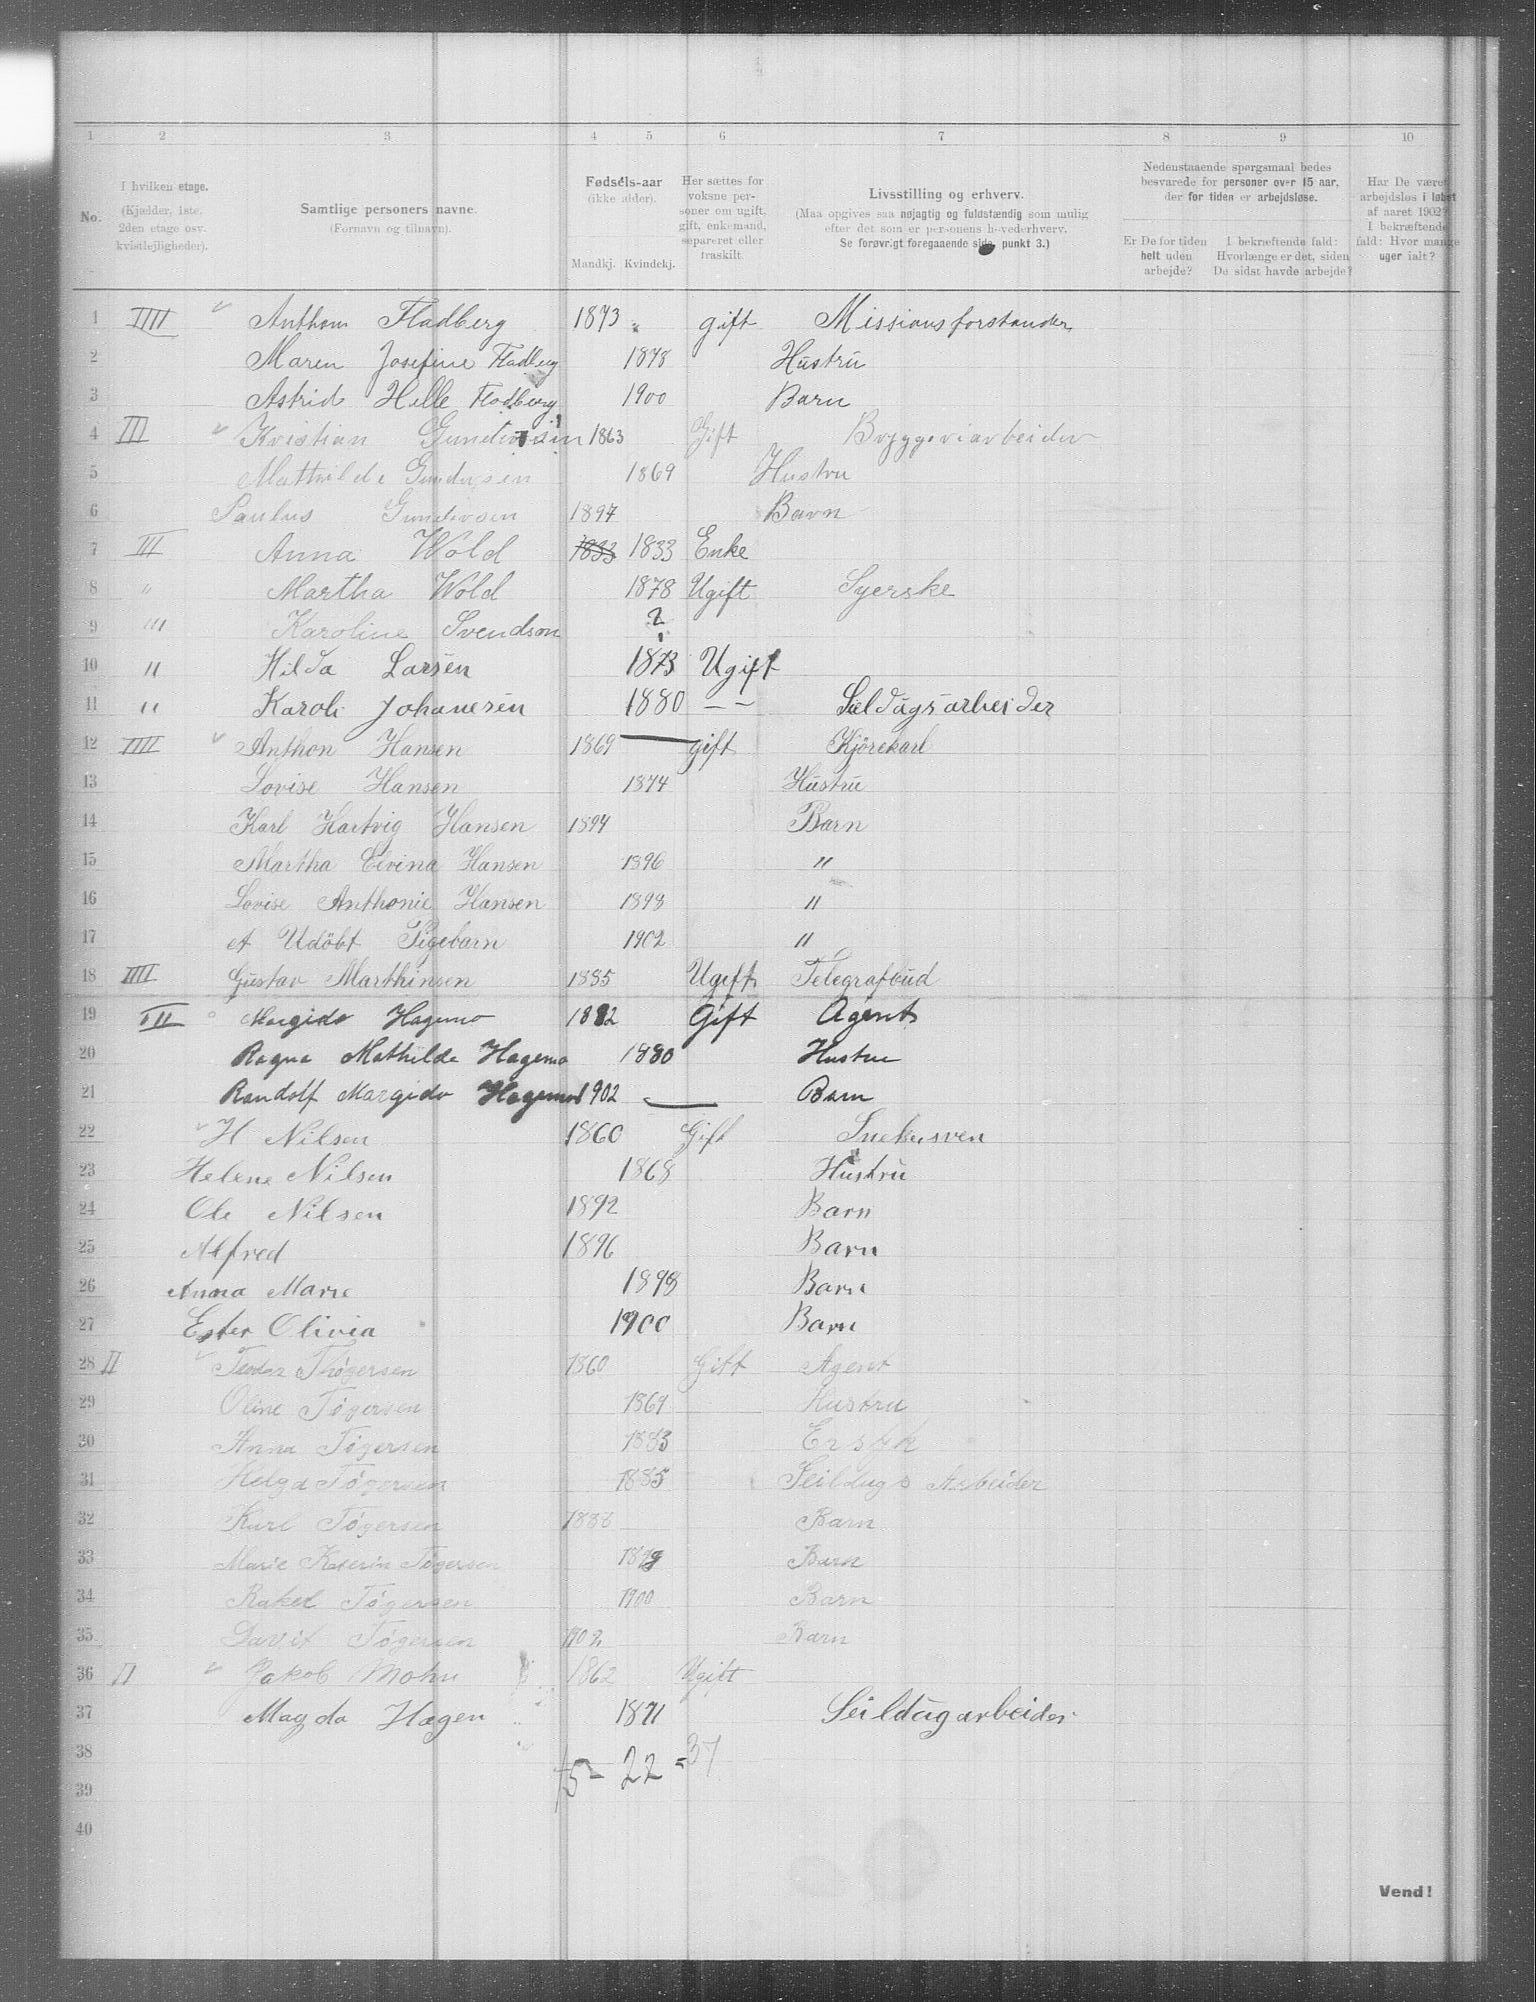 1 2 3 4 5 6 7 8 9 10
No. I hvilken etage. (Kjælder, 1ste, 2den etage osv. kvistlejligheder). Samtlige personers navne. (Fornavn og tilnavn). Fødsels-aar (ikke alder). Mandkj. Kvindekj. Her sættes for voksne personer om ugift, gift, enkemand, separeret eller fraskilt. Livsstilling og erhverv. (Maa opgives saa nøjagtig og fuldstændig som mulig efter det som er personens hovederhverv. Se forøvrigt foregaaende side, punkt 3.) Nedenstaaende spørgsmaal bedes besvarede for personer over 15 aar, der for tiden er arbejdsløse. Er De for tiden helt uden arbejde? I bekræftende fald: Hvorlænge er det, siden De sidst havde arbejde? Har De været arbejdsløs i løbet af aaret 1902? I bekræftende fald: Hvor mange uger ialt?
1 IIII Anthom Fladberg 1873 " gift Missionsforstander
2 Maren Josefine Fladberg 1878 Hustru
3 Astrid Helle Fladberg 1900 Barn
4 III Kristian Gundersen 1863 Gift Bryggeriarbeider
5 Mathilde Gundersen 1869 Hustru
6 Paulus Gundersen 1897 Barn
7 III Anna Wold 1833 1833 Enke
8 " Martha Wold 1878 Ugift Syerske
9 "' Karoline Svendson ?
10 " Hilda Larsen 1873 Ugift
11 " Karoli Johanesen 1880 — — Seldugsarbeider
12 IIII Anthon Hansen 1869 gift Kjörekarl
13 Lovise Hansen 1874 Hustru
14 Karl Hartvig Hansen 1894 Barn
15 Martha Elvina Hansen 1896 "
16 Lovise Anthonie Hansen 1898 "
17 et Udöbt Pigebarn 1902 "
18 IIII Gustav Marthinsen 1885 Ugift Telegrafbud
19 III Margido Hagemo 1882 Gift Agent
20 Ragna Mathilde Hagemo 1880 Hustru
21 Randolf Margido Hagemo 1902 — Barn
22 H Nilsen 1860 Gift Snekersven
23 Helene Nilsen 1868 Hustru
24 Ole Nilsen 1892 Barn
25 Alfred 1896 Barn
26 Anna Marie 1898 Barn
27 Ester Olivia 1900 Barn
28 II Teodor Thøgersen 1860 Gift Agent
29 Oline Tøgersen 1869 Hustru
30 Anna Tøgersen 1883
31 Helga Tøgersen 1885 Seildugs Arbeider
32 Karl Tøgersen 1888 Barn
33 Marie Katrin Tøgersen Barn
34 Rakel Tøgersen 1900 Barn
35 Davit Tøgersen 1902 Barn
36 II Jakob Mohn 1862 Ugift
37 Magda Hagen 1871 Seildugarbeider
38
15 - 22 = 37
39
40
Vend!